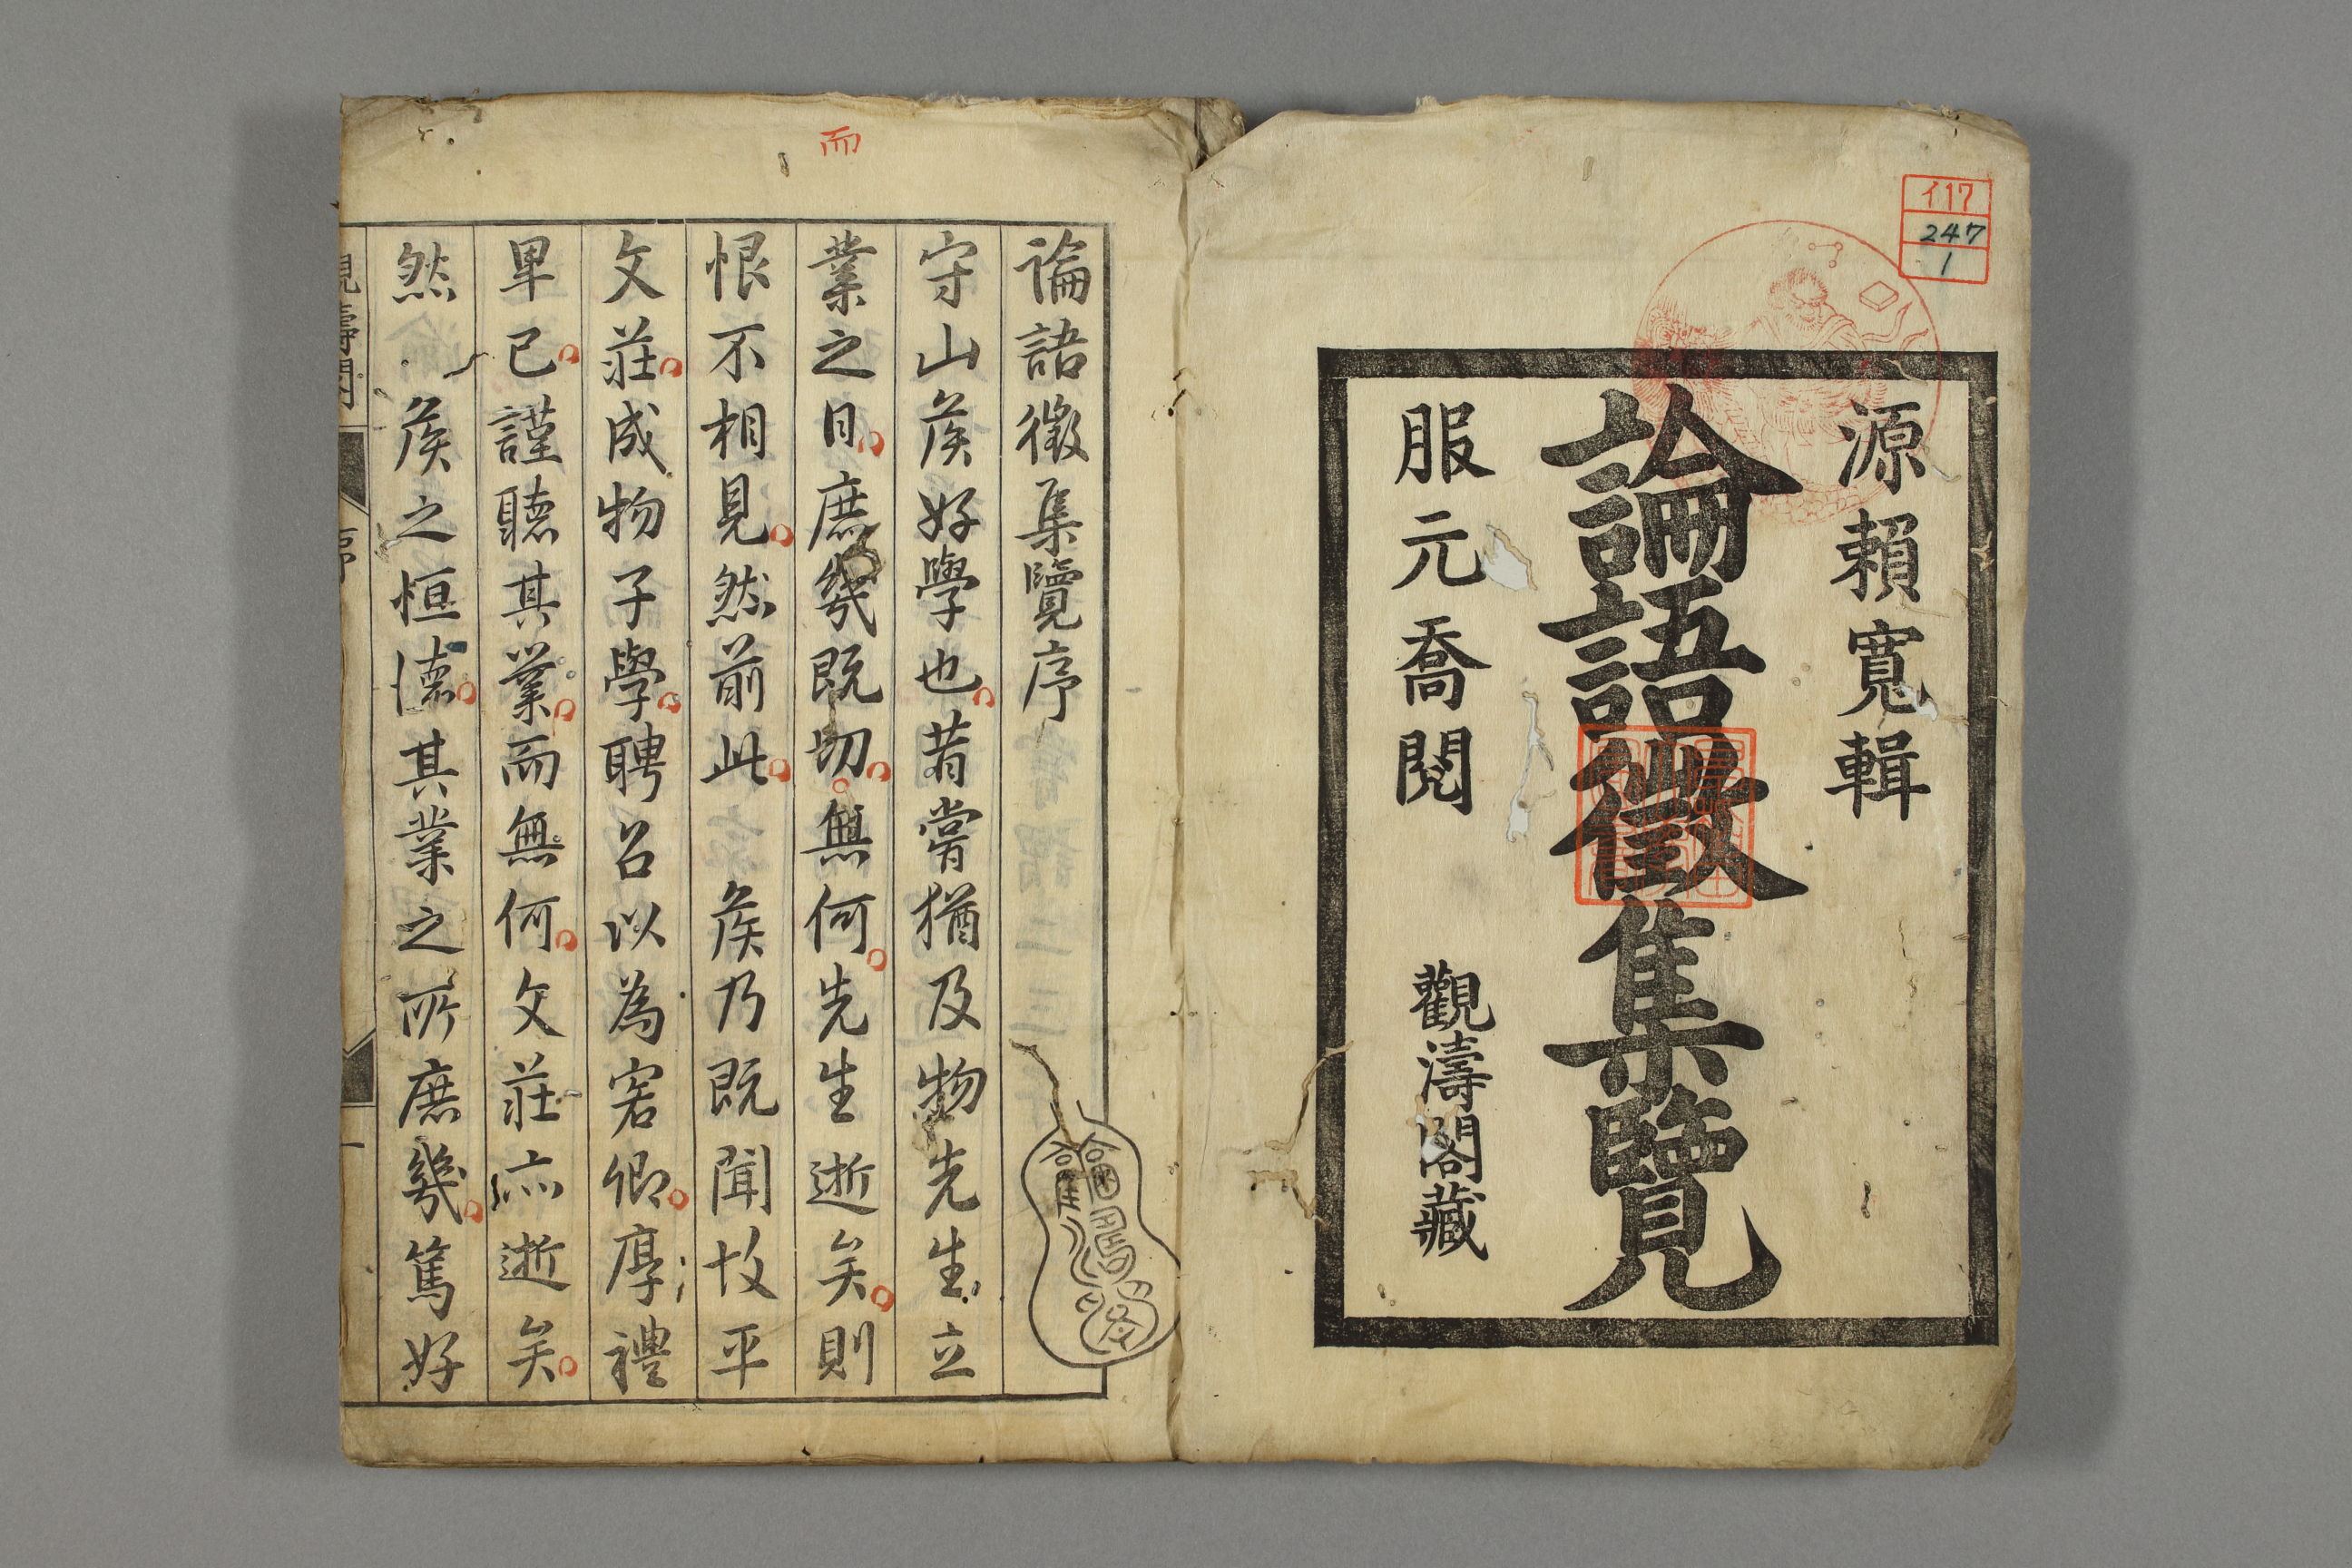 イ17
247
1
源賴寬輯
論語徵集覽
服元喬閱
觀濤閣藏
而
論語徵集覽序
守山矦好學也昔嘗猶及物先生立
業之日庶幾既切無何先生逝矣則
恨不相見然前此 矦乃既聞故平
文莊成物子學聘召以為客卿厚禮
卑已謹聽其業而無何文莊亦逝矣
然 矦之恒德其業之所庶幾篤好
序
一